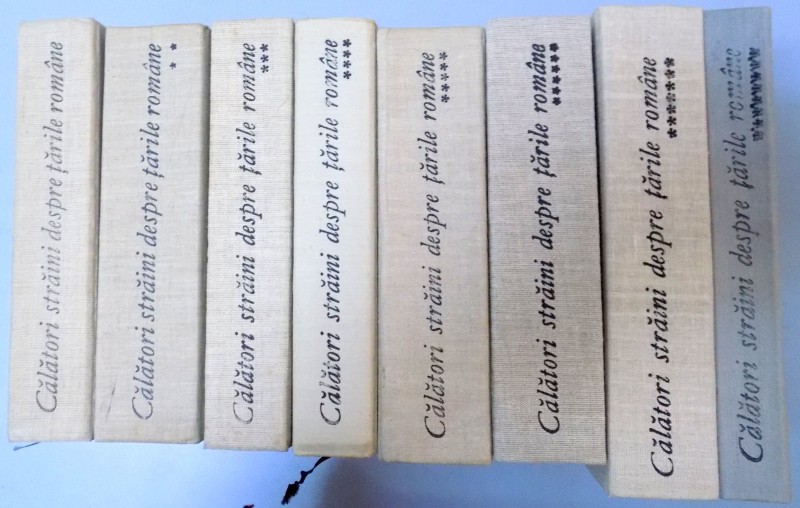 Călători străini despre ţările române
Călători străini despre ţările române
* *
Călători străini despre ţările române
***
Călători străini despre ţările române
****
Călători străini despre ţările române
*****
Călători străini despre ţările române
******
Călători străini despre ţările române
*******
Călători străini despre ţările române
********